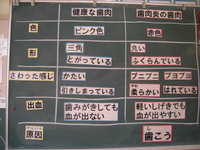 健康な歯肉 歯肉炎の歯肉
色 ピンク色 赤色
形 三角 丸い
とがっている ふくらんでいる
さわった感じ かたい プニプニ ブヨブヨ
引きしまっている やわらかい はれている
出血 歯みがきしても 軽いしげきでも
血が出ない 血が出やすい
原因 歯こう